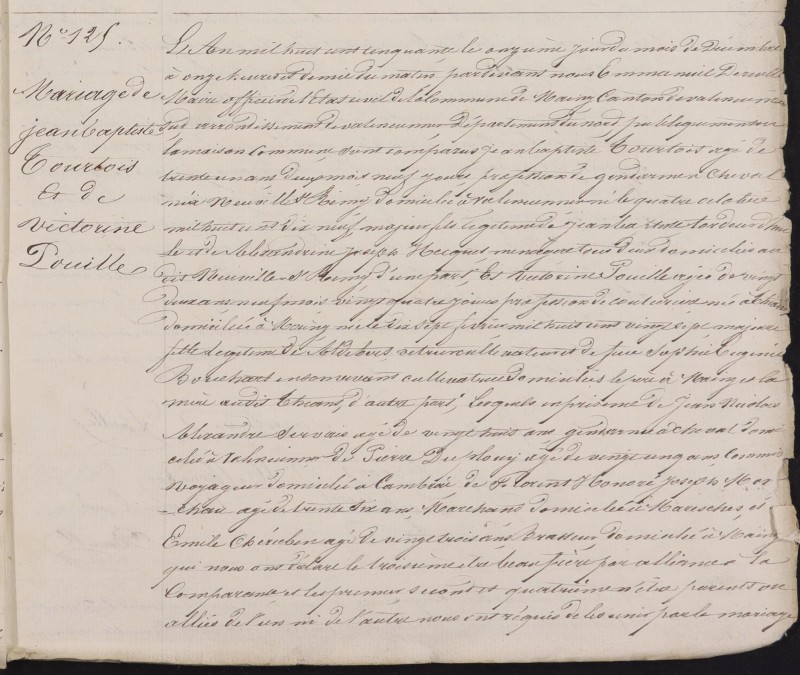 N.º 125.
Mariage de
jean baptiste
Tourtois
Et de
Victorine
Pouille
Le An mil huit cent cinquante le onzième jour du mois de Décembre
à onze heures et demie du matin pardevant nous Emmanuel
Maire officier de l'Etat civil de la Commune de Maing Canton de valenciennes
Sud arrondissement de valenciennes Département du nord, publiquement en
la maison commune sont comparus jean baptiste Tourtois agé de
trente un ans deux mois neuf jours profession de gendarme à cheval
né à Neuville St Rémy domicilié à valenciennes né le quatre octobre
mil huit cent dix neuf majeur fils légitime de jean baptiste
et de Alexandrine joseph Hecquet ménagère tous deux domiciliés au
dit Neuville St Remy d'une part, Et Victorine Pouille agée de vingt
ans neuf mois vingt quatre jours profession de couturière née à Thiant
domiciliée à Maing née le dix sept février mil huit cent vingt sept majeure
fille légitime de cultivateur et de feue Sophie Eugénie
en son vivant cultivatrice domiciliés le père à Maing et la
mère audit Thiant, d'autre part, Lesquels en présence de Jean Nicolas
Alexandre Servais agé de vingt huit ans gendarme à cheval domi
cilié à Valenciennes de Pierre agé de vingt cinq ans Commis
Voyageur domicilié à Cambrai de Florent Honoré Joseph Mor
-chain agé de trente six ans Marchand domicilié à Maresches, et
Emile agé de vingt trois ans Brasseur domicilié à Maing
qui nous ont déclaré le troisième être beau frère par alliance à la
Comparante et les premier second et quatrième n'être parents ou
alliés de l'un ni de l'autre nous ont réquis de les unir par le mariage